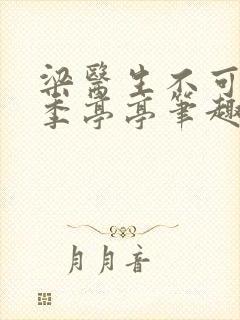 梁醫生不可
季亭亭筆趣
月月音